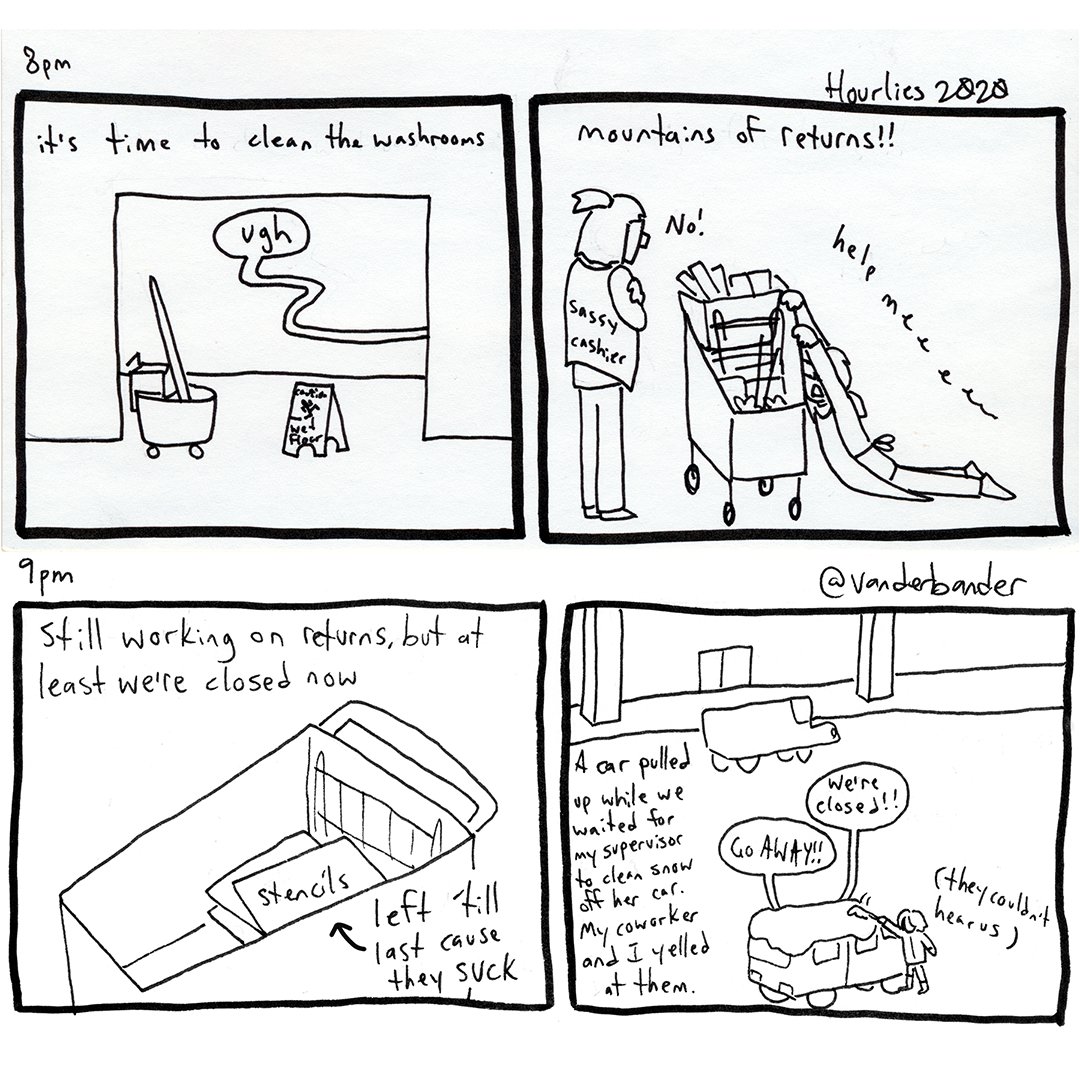 8pm
Hourlies 2020
it's time to clean the washrooms
ugh
caution
wet
floor
mountains of returns!!
No!
help meeeee
sassy
cashier
9pm
@vanderbander
Still working on returns, but at
least we're closed now
stencils
left till
last cause
they SUCK
A car pulled
up while we
waited for
my supervisor
to clean snow
off her car.
My coworker
and I yelled
at them.
We're
closed!!
GO AWAY!!
(they couldn't
hear us)